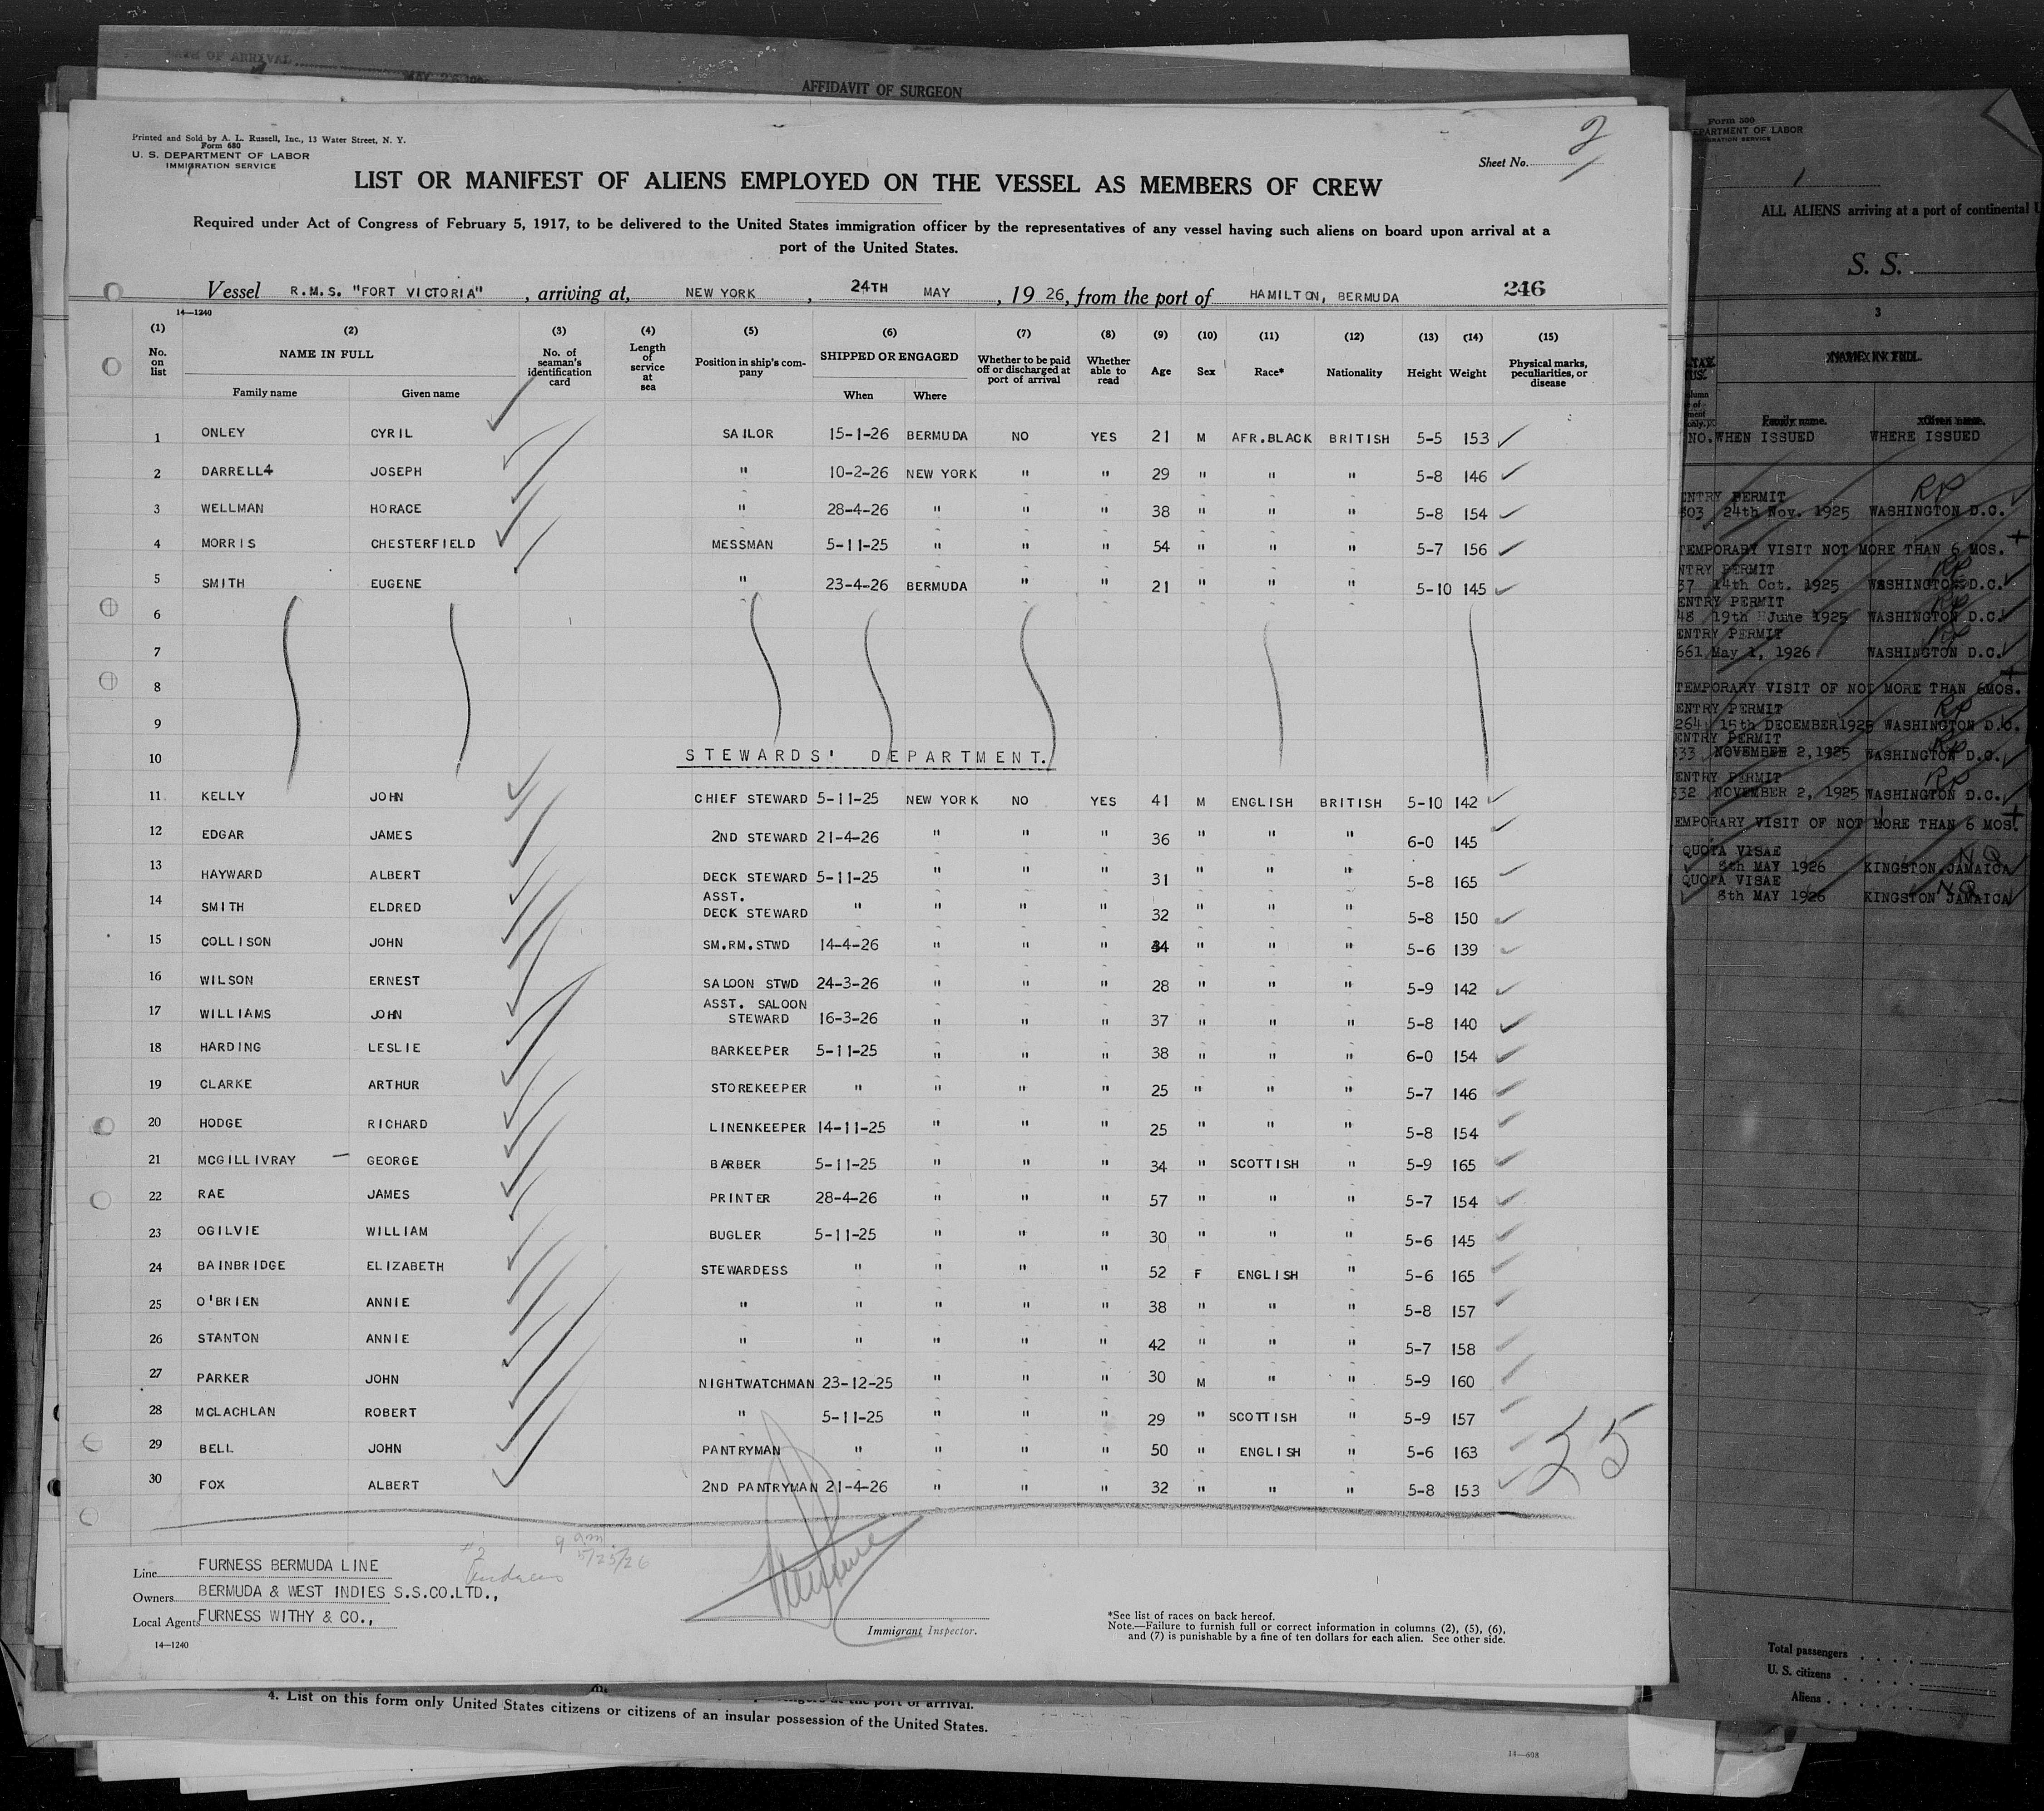 DATE OF ARRIVAL
AFFIDAVIT OF SURGEON
Printed and Sold by A. L. Russell, Inc., 13 Water Street, N. Y.
Form 680
U. S. DEPARTMENT OF LABOR
IMMIGRATION SERVICE
Sheet No. 2
LIST OR MANIFEST OF ALIENS EMPLOYED ON THE VESSEL AS MEMBERS OF CREW
Required under Act of Congress of February 5, 1917, to be delivered to the United States immigration officer by the representatives of any vessel having such aliens on board upon arrival at a
port of the United States.
Vessel R.M.S. "FORT VICTORIA", arriving at, NEW YORK, 24TH MAY, 19 26, from the port of HAMILTON, BERMUDA 246
14—1240
(1) (2) (3) (4) (5) (6) (7) (8) (9) (10) (11) (12) (13) (14) (15)
No. on list NAME IN FULL No. of seaman's identification card Length of service at sea Position in ship's company SHIPPED OR ENGAGED Whether to be paid off or discharged at port of arrival Whether able to read Age Sex Race* Nationality Height Weight Physical marks, peculiarities, or disease
Family name Given name When Where
1 ONLEY CYRIL SAILOR 15-1-26 BERMUDA NO YES 21 M AFR.BLACK BRITISH 5-5 153
2 DARRELL4 JOSEPH " 10-2-26 NEW YORK " " 29 " " " 5-8 146
3 WELLMAN HORACE " 28-4-26 " " " 38 " " " 5-8 154
4 MORRIS CHESTERFIELD MESSMAN 5-11-25 " " " 54 " " " 5-7 156
5 SMITH EUGENE " 23-4-26 BERMUDA " " 21 " " " 5-10 145
6
7
8
9
10 STEWARDS' DEPARTMENT.
11 KELLY JOHN CHIEF STEWARD 5-11-25 NEW YORK NO YES 41 M ENGLISH BRITISH 5-10 142
12 EDGAR JAMES 2ND STEWARD 21-4-26 " " " 36 " " " 6-0 145
13 HAYWARD ALBERT DECK STEWARD 5-11-25 " " " 31 " " " 5-8 165
14 SMITH ELDRED ASST. DECK STEWARD " " " " 32 " " " 5-8 150
15 COLLISON JOHN SM.RM.STWD 14-4-26 " " " 34 " " " 5-6 139
16 WILSON ERNEST SALOON STWD 24-3-26 " " " 28 " " " 5-9 142
17 WILLIAMS JOHN ASST. SALOON STEWARD 16-3-26 " " " 37 " " " 5-8 140
18 HARDING LESLIE BARKEEPER 5-11-25 " " " 38 " " " 6-0 154
19 CLARKE ARTHUR STOREKEEPER " " " " 25 " " " 5-7 146
20 HODGE RICHARD LINENKEEPER 14-11-25 " " " 25 " " " 5-8 154
21 MCGILLIVRAY — GEORGE BARBER 5-11-25 " " " 34 " SCOTTISH " 5-9 165
22 RAE JAMES PRINTER 28-4-26 " " " 57 " " " 5-7 154
23 OGILVIE WILLIAM BUGLER 5-11-25 " " " 30 " " " 5-6 145
24 BAINBRIDGE ELIZABETH STEWARDESS " " " " 52 F ENGLISH " 5-6 165
25 O'BRIEN ANNIE " " " " " 38 " " " 5-8 157
26 STANTON ANNIE " " " " " 42 " " " 5-7 158
27 PARKER JOHN NIGHTWATCHMAN 23-12-25 " " " 30 M " " 5-9 160
28 MCLACHLAN ROBERT " 5-11-25 " " " 29 " SCOTTISH " 5-9 157
29 BELL JOHN PANTRYMAN " " " " 50 " ENGLISH " 5-6 163
30 FOX ALBERT 2ND PANTRYMAN 21-4-26 " " " 32 " " " 5-8 153
#2 9 am 5/25/26
Line FURNESS BERMUDA LINE
Owners BERMUDA & WEST INDIES S.S.CO.LTD.,
Local Agents FURNESS WITHY & CO.,
14—1240
Immigrant Inspector.
*See list of races on back hereof.
Note.—Failure to furnish full or correct information in columns (2), (5), (6),
and (7) is punishable by a fine of ten dollars for each alien. See other side.
at the port of arrival.
4. List on this form only United States citizens or citizens of an insular possession of the United States.
14—608
Form 500
DEPARTMENT OF LABOR
IMMIGRATION SERVICE
ALL ALIENS arriving at a port of continental
S. S.
3
NAME IN FULL
Family name. Given name.
NO. WHEN ISSUED WHERE ISSUED
ENTRY PERMIT
303 24th Nov. 1925 WASHINGTON D.C.
TEMPORARY VISIT NOT MORE THAN 6 MOS.
NTRY PERMIT
37 14th Oct. 1925 WASHINGTON D.C.
ENTRY PERMIT
48 19th June 1925 WASHINGTON D.C.
ENTRY PERMIT
661 May 1, 1926 WASHINGTON D.C.
TEMPORARY VISIT OF NOT MORE THAN 6MOS.
ENTRY PERMIT
264 15th DECEMBER1925 WASHINGTON D.C.
ENTRY PERMIT
333 NOVEMBER 2,1925 WASHINGTON D.C.
ENTRY PERMIT
332 NOVEMBER 2, 1925 WASHINGTON D.C.
EMPORARY VISIT OF NOT MORE THAN 6 MOS.
QUOTA VISAE
8th MAY 1926 KINGSTON JAMAICA
QUOTA VISAE
8th MAY 1926 KINGSTON JAMAICA
Total passengers
U. S. citizens
Aliens